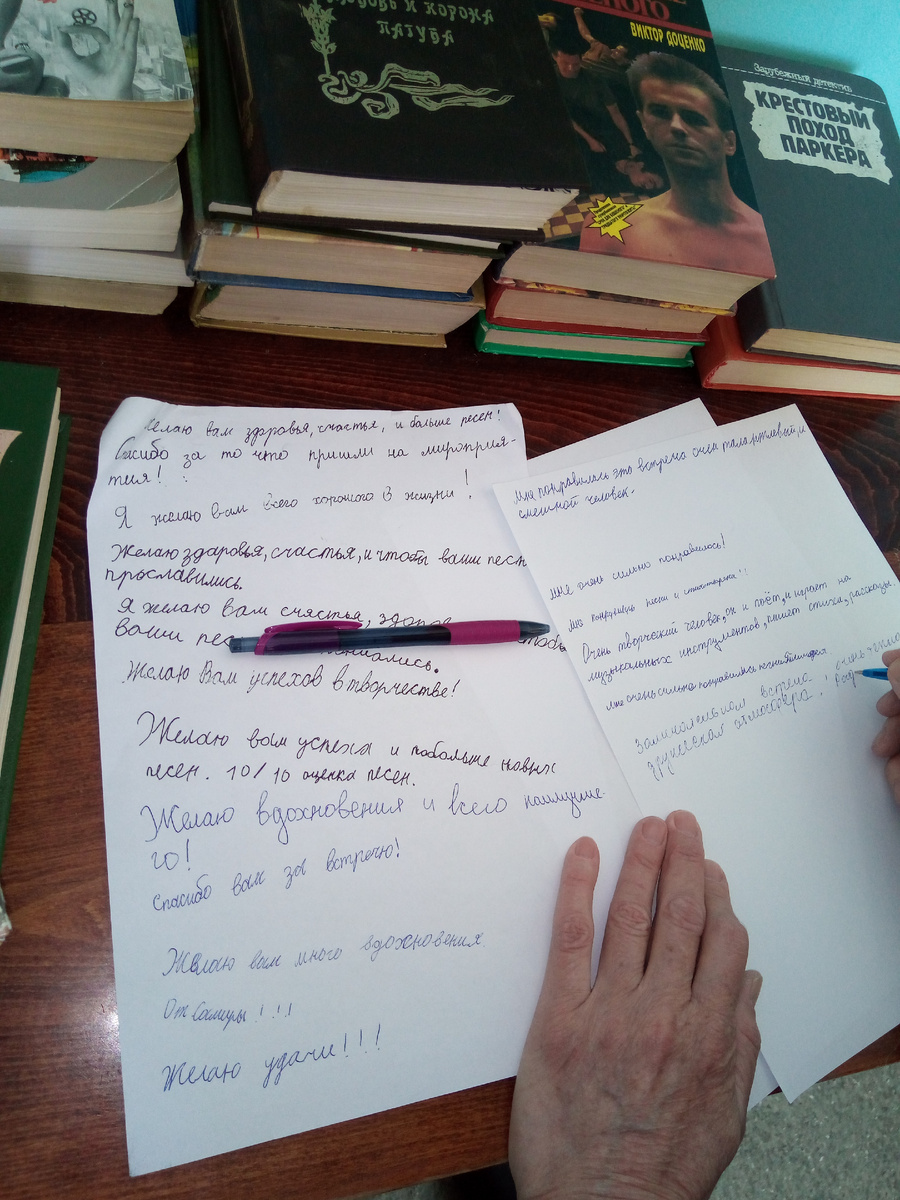 ЛЮБОВЬ И КОРОНА
ПАГУБА
ВИКТОР ДОЦЕНКО
Зарубежный детектив
КРЕСТОВЫЙ
ПОХОД
ПАРКЕРА
Желаю вам здоровья, счастья, и больше песен!
Спасибо за то что пришли на мироприя-
тия!
Я желаю вам всего хорошого в жизни!
Желаю здоровья, счастья, и чтобы ваши песн
прославились.
Я желаю вам счастья,
ваши
Желаю Вам успехов в творчестве!
Желаю вам успеха и побольше новых
песен. 10/10 оценка песен.
Желаю вдохновения и всего наилучше-
го!
Спасибо вам за встречю!
Желаю вам много вдохновения.
От
Желаю удачи!!!
Мне понравилась это встреча очен талантлевый, и
смешной человек.
Мне очень сильно понравилось!
Мне понравились песни и стихотворения!!
Очень творческий человек, он и поёт, и играет на
музыкальных инструментов, пишет стихи, рассказы.
Мне очень сильно понравились
встреча, очень
дружеская атмосфера!